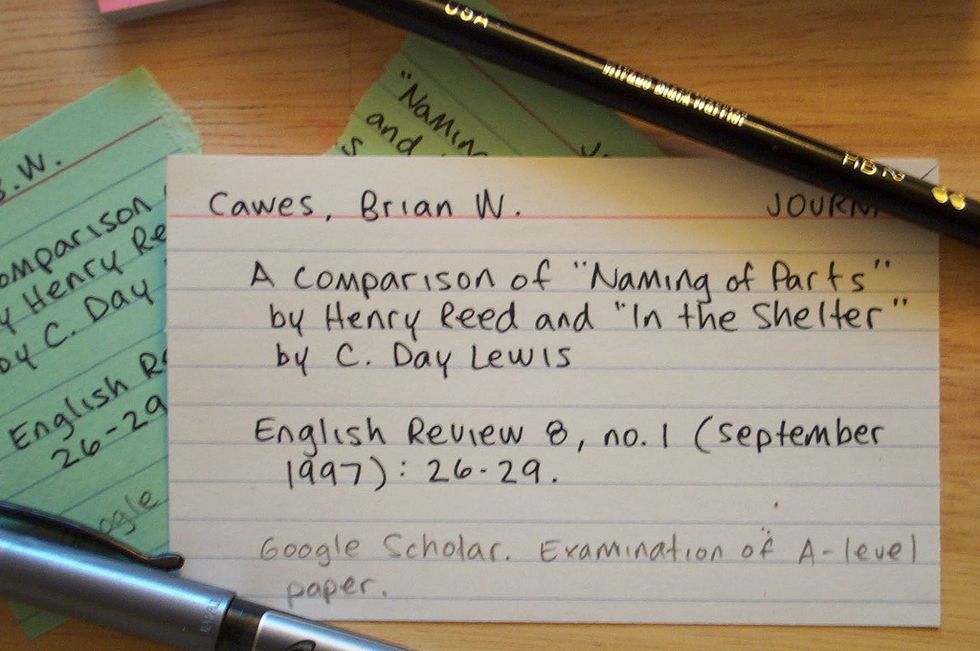 USA
Mirado Black Warrior
HB 2
"Naming
and
B.W.
Comparison
Henry Re
by C. Day
English Re
26-29
ogle
Cawes, Brian W.
JOURN
A Comparison of "Naming of Parts"
by Henry Reed and "In the Shelter"
by C. Day Lewis
English Review 8, no. 1 (September
1997): 26-29.
Google Scholar. Examination of A-level
paper.